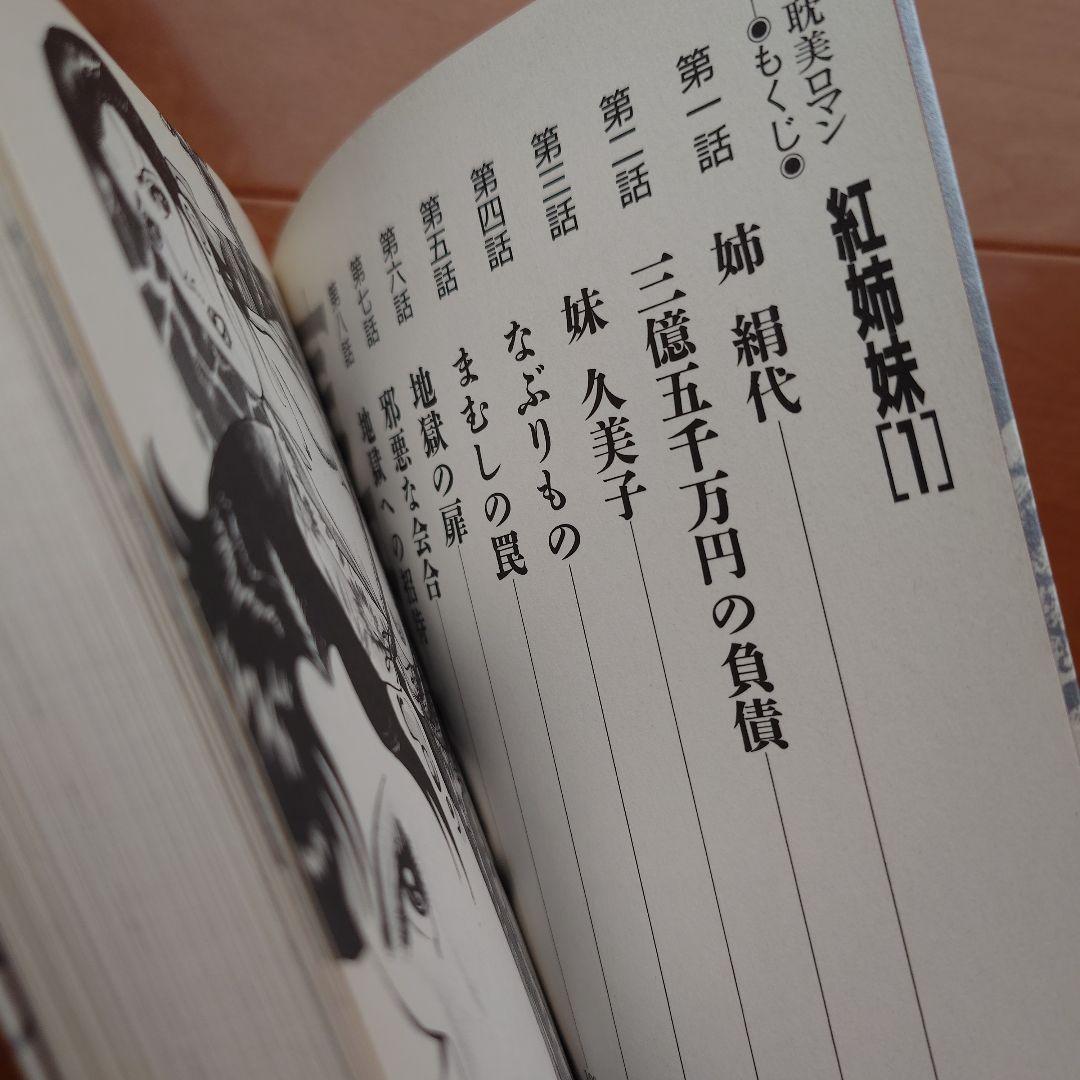 耽美ロマン
◉もくじ◉
紅姉妹[1]
第一話 姉 絹代
第二話 三億五千万円の負債
第三話 妹 久美子
第四話 なぶりもの
第五話 まむしの罠
第六話 地獄の扉
第七話 邪悪な会合
第八話 地獄への招待